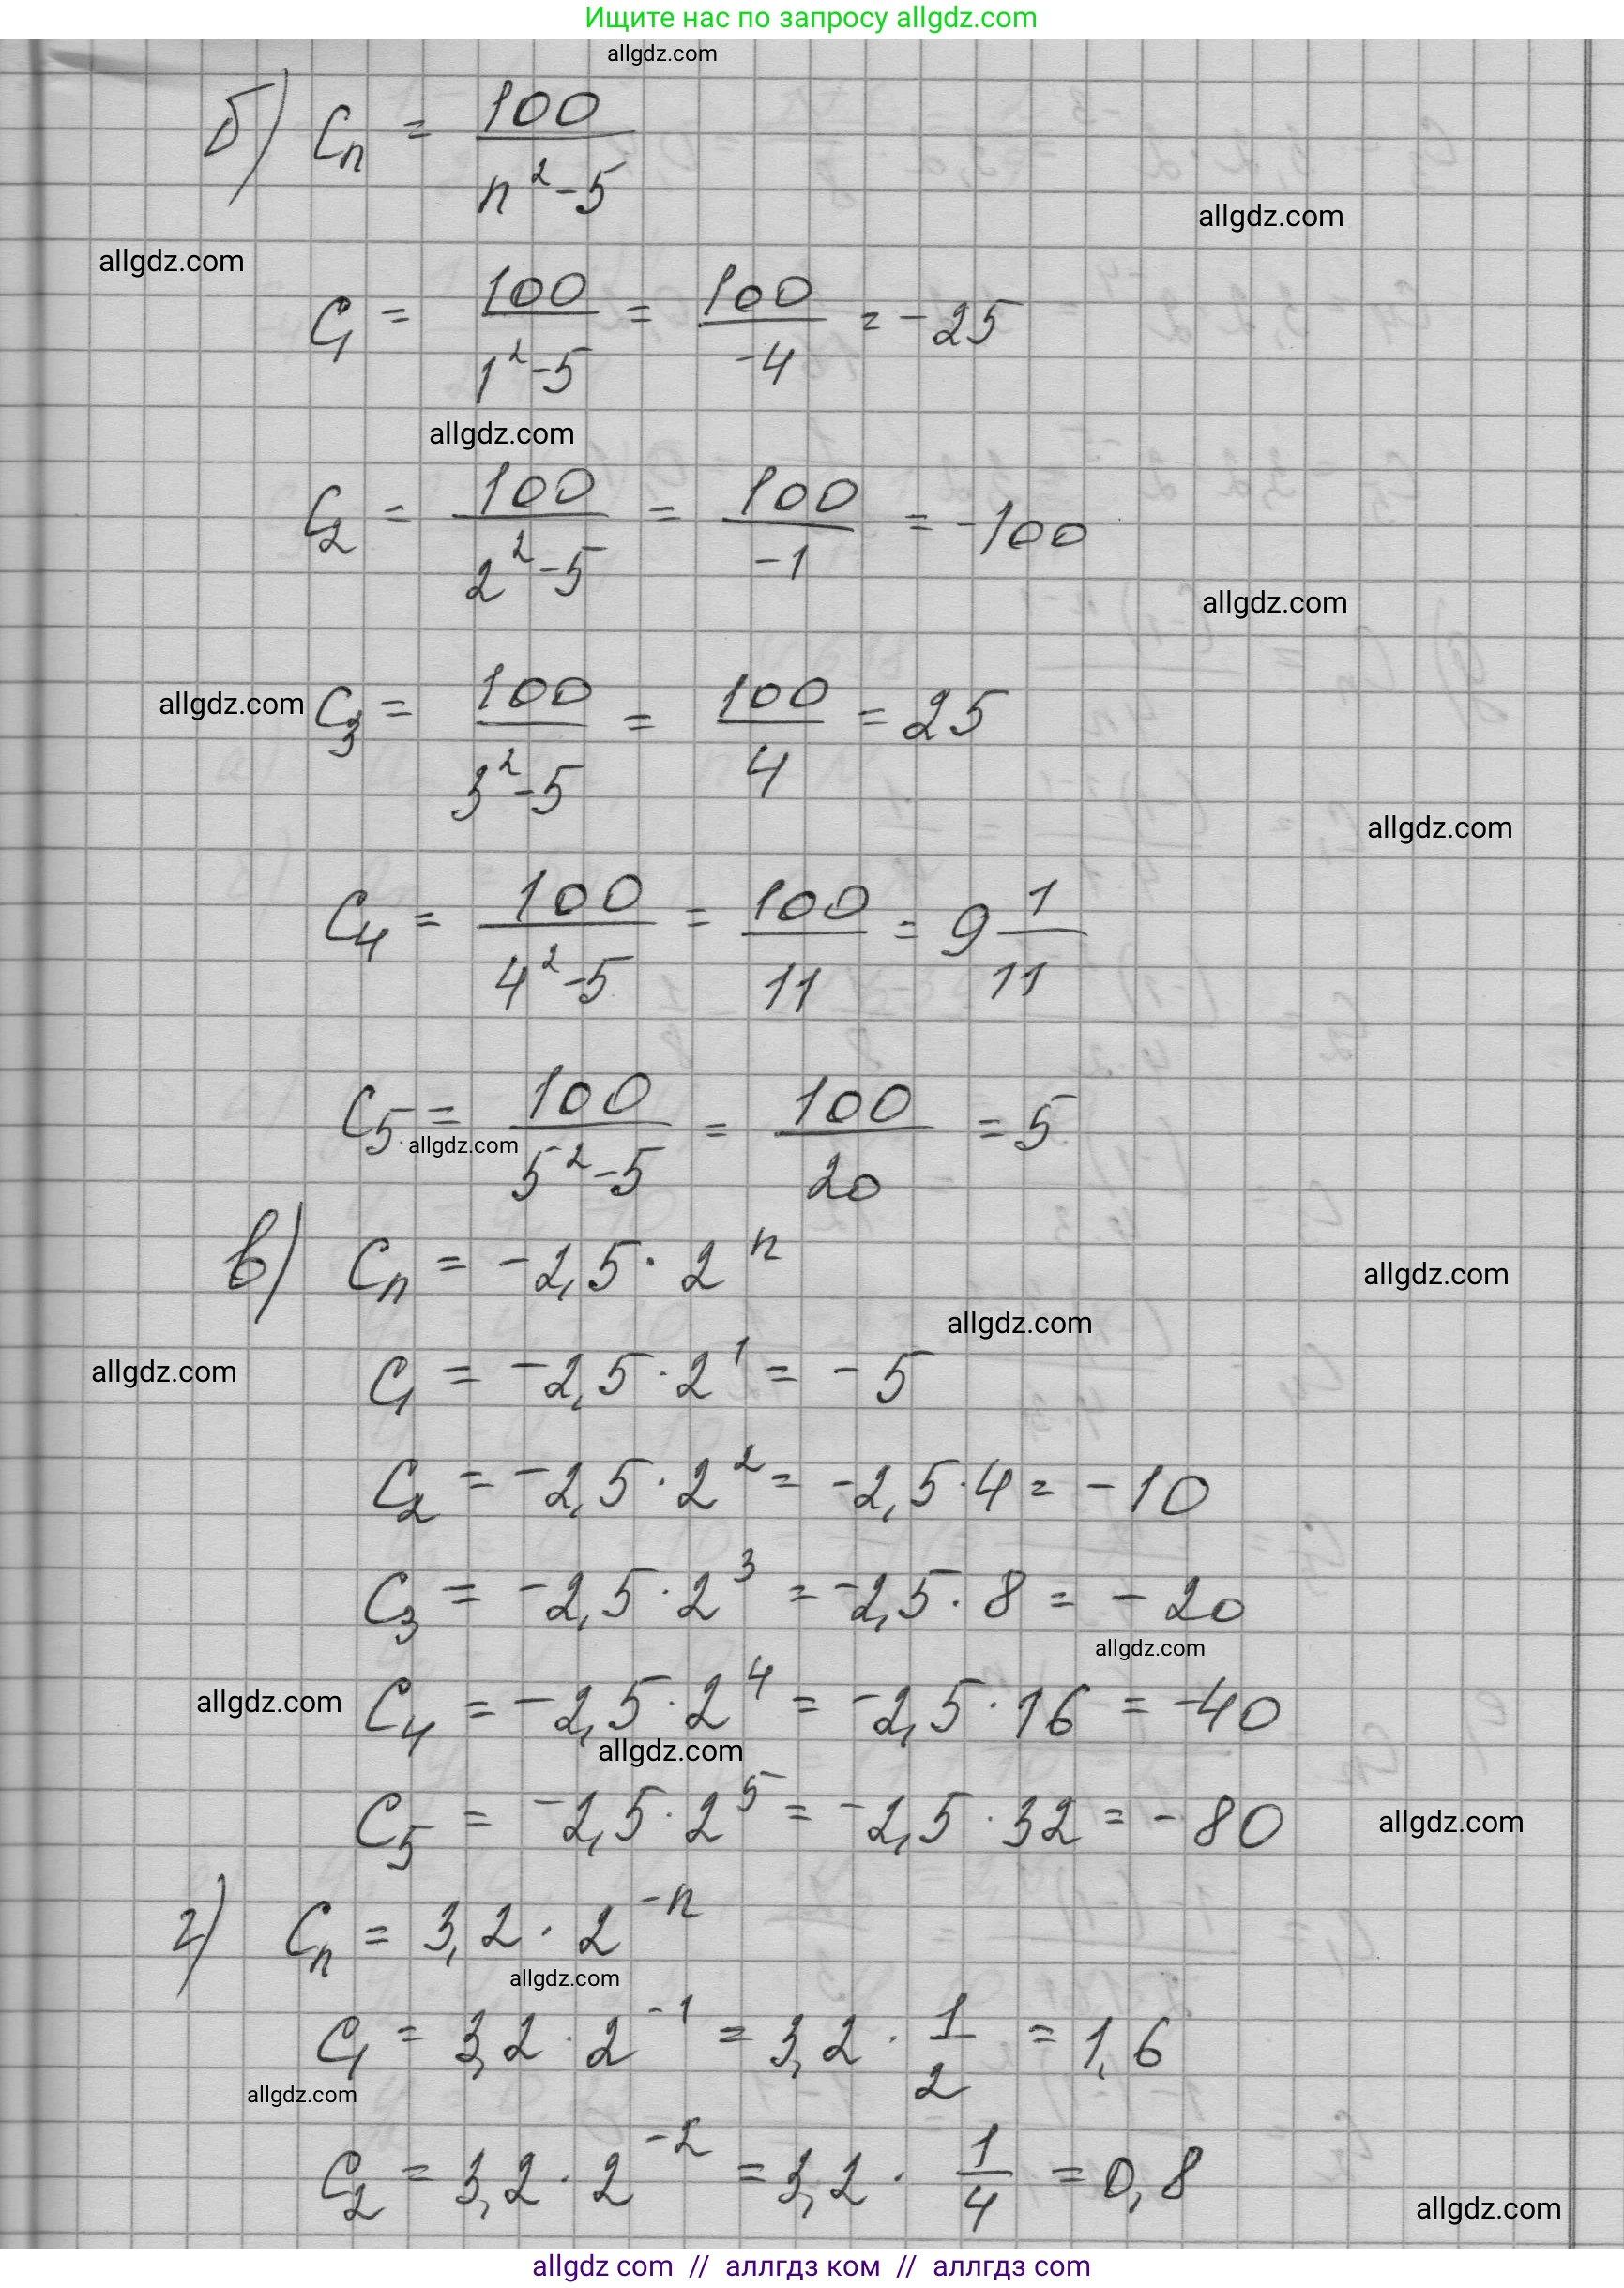 Ищите нас по запросу allgdz.com
allgdz.com
б) Cₙ = 100/(n² - 5)
allgdz.com
allgdz.com
C₁ = 100/(1² - 5) = 100/(-4) = -25
allgdz.com
C₂ = 100/(2² - 5) = 100/(-1) = -100
allgdz.com
allgdz.com
C₃ = 100/(3² - 5) = 100/4 = 25
allgdz.com
C₄ = 100/(4² - 5) = 100/11 = 9 1/11
C₅ = 100/(5² - 5) = 100/20 = 5
allgdz.com
в) Cₙ = -2,5 · 2ⁿ
allgdz.com
allgdz.com
allgdz.com
C₁ = -2,5 · 2¹ = -5
C₂ = -2,5 · 2² = -2,5 · 4 = -10
C₃ = -2,5 · 2³ = -2,5 · 8 = -20
allgdz.com
allgdz.com
C₄ = -2,5 · 2⁴ = -2,5 · 16 = -40
allgdz.com
C₅ = -2,5 · 2⁵ = -2,5 · 32 = -80
allgdz.com
г) Cₙ = 3,2 · 2⁻ⁿ
allgdz.com
C₁ = 3,2 · 2⁻¹ = 3,2 · 1/2 = 1,6
allgdz.com
C₂ = 3,2 · 2⁻² = 3,2 · 1/4 = 0,8
allgdz.com
allgdz com // аллгдз ком // аллгдз com